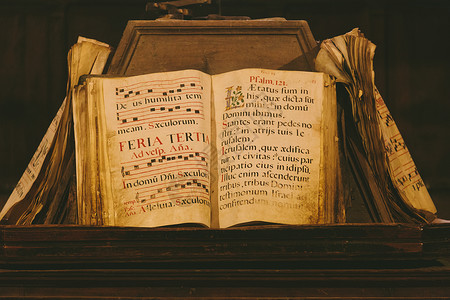 De us humilita tem
meam. Sæculorum.
FERIA TERTIA
Ad vesp. Aña.
In domũ Dñi. Sæculorum
Sæculorum
Psalm. 121.
Lætatus sum in
his, quæ dicta sũt
in domũ
Domini ibimus.
Stantes erant pedes no
in atrijs tuis Je
rusalem.
Jerusalem, quæ ædifica
ut civitas: cujus par
ticipatio ejus in idipsũ.
Illuc enim ascenderunt
tribus, tribus Domini:
testimonium Israel
confitendum